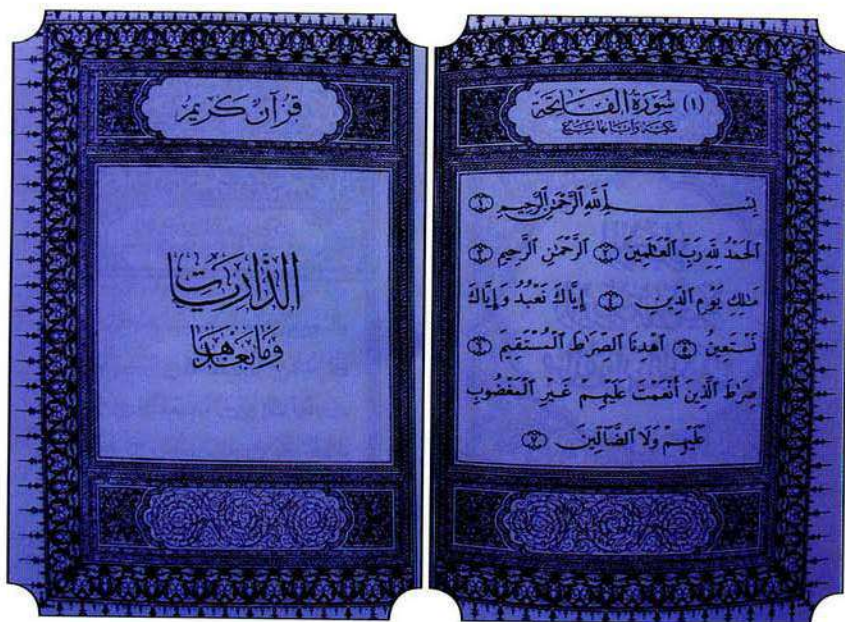 (١) سُورَةُ الفَاتِحَة
مَكيَّة وَآيَاتهَا سَبْع
بِسْمِ ٱللَّهِ ٱلرَّحْمَٰنِ ٱلرَّحِيمِ ١
ٱلْحَمْدُ لِلَّهِ رَبِّ ٱلْعَالَمِينَ ٢ ٱلرَّحْمَٰنِ ٱلرَّحِيمِ ٣
مَٰلِكِ يَوْمِ ٱلدِّينِ ٤ إِيَّاكَ نَعْبُدُ وَإِيَّاكَ
نَسْتَعِينُ ٥ ٱهْدِنَا ٱلصِّرَٰطَ ٱلْمُسْتَقِيمَ ٦
صِرَٰطَ ٱلَّذِينَ أَنْعَمْتَ عَلَيْهِمْ غَيْرِ ٱلْمَغْضُوبِ
عَلَيْهِمْ وَلَا ٱلضَّآلِّينَ ٧
قُرآن كَريمُ
الذّاريَات
وَمَا بَعْدهَا